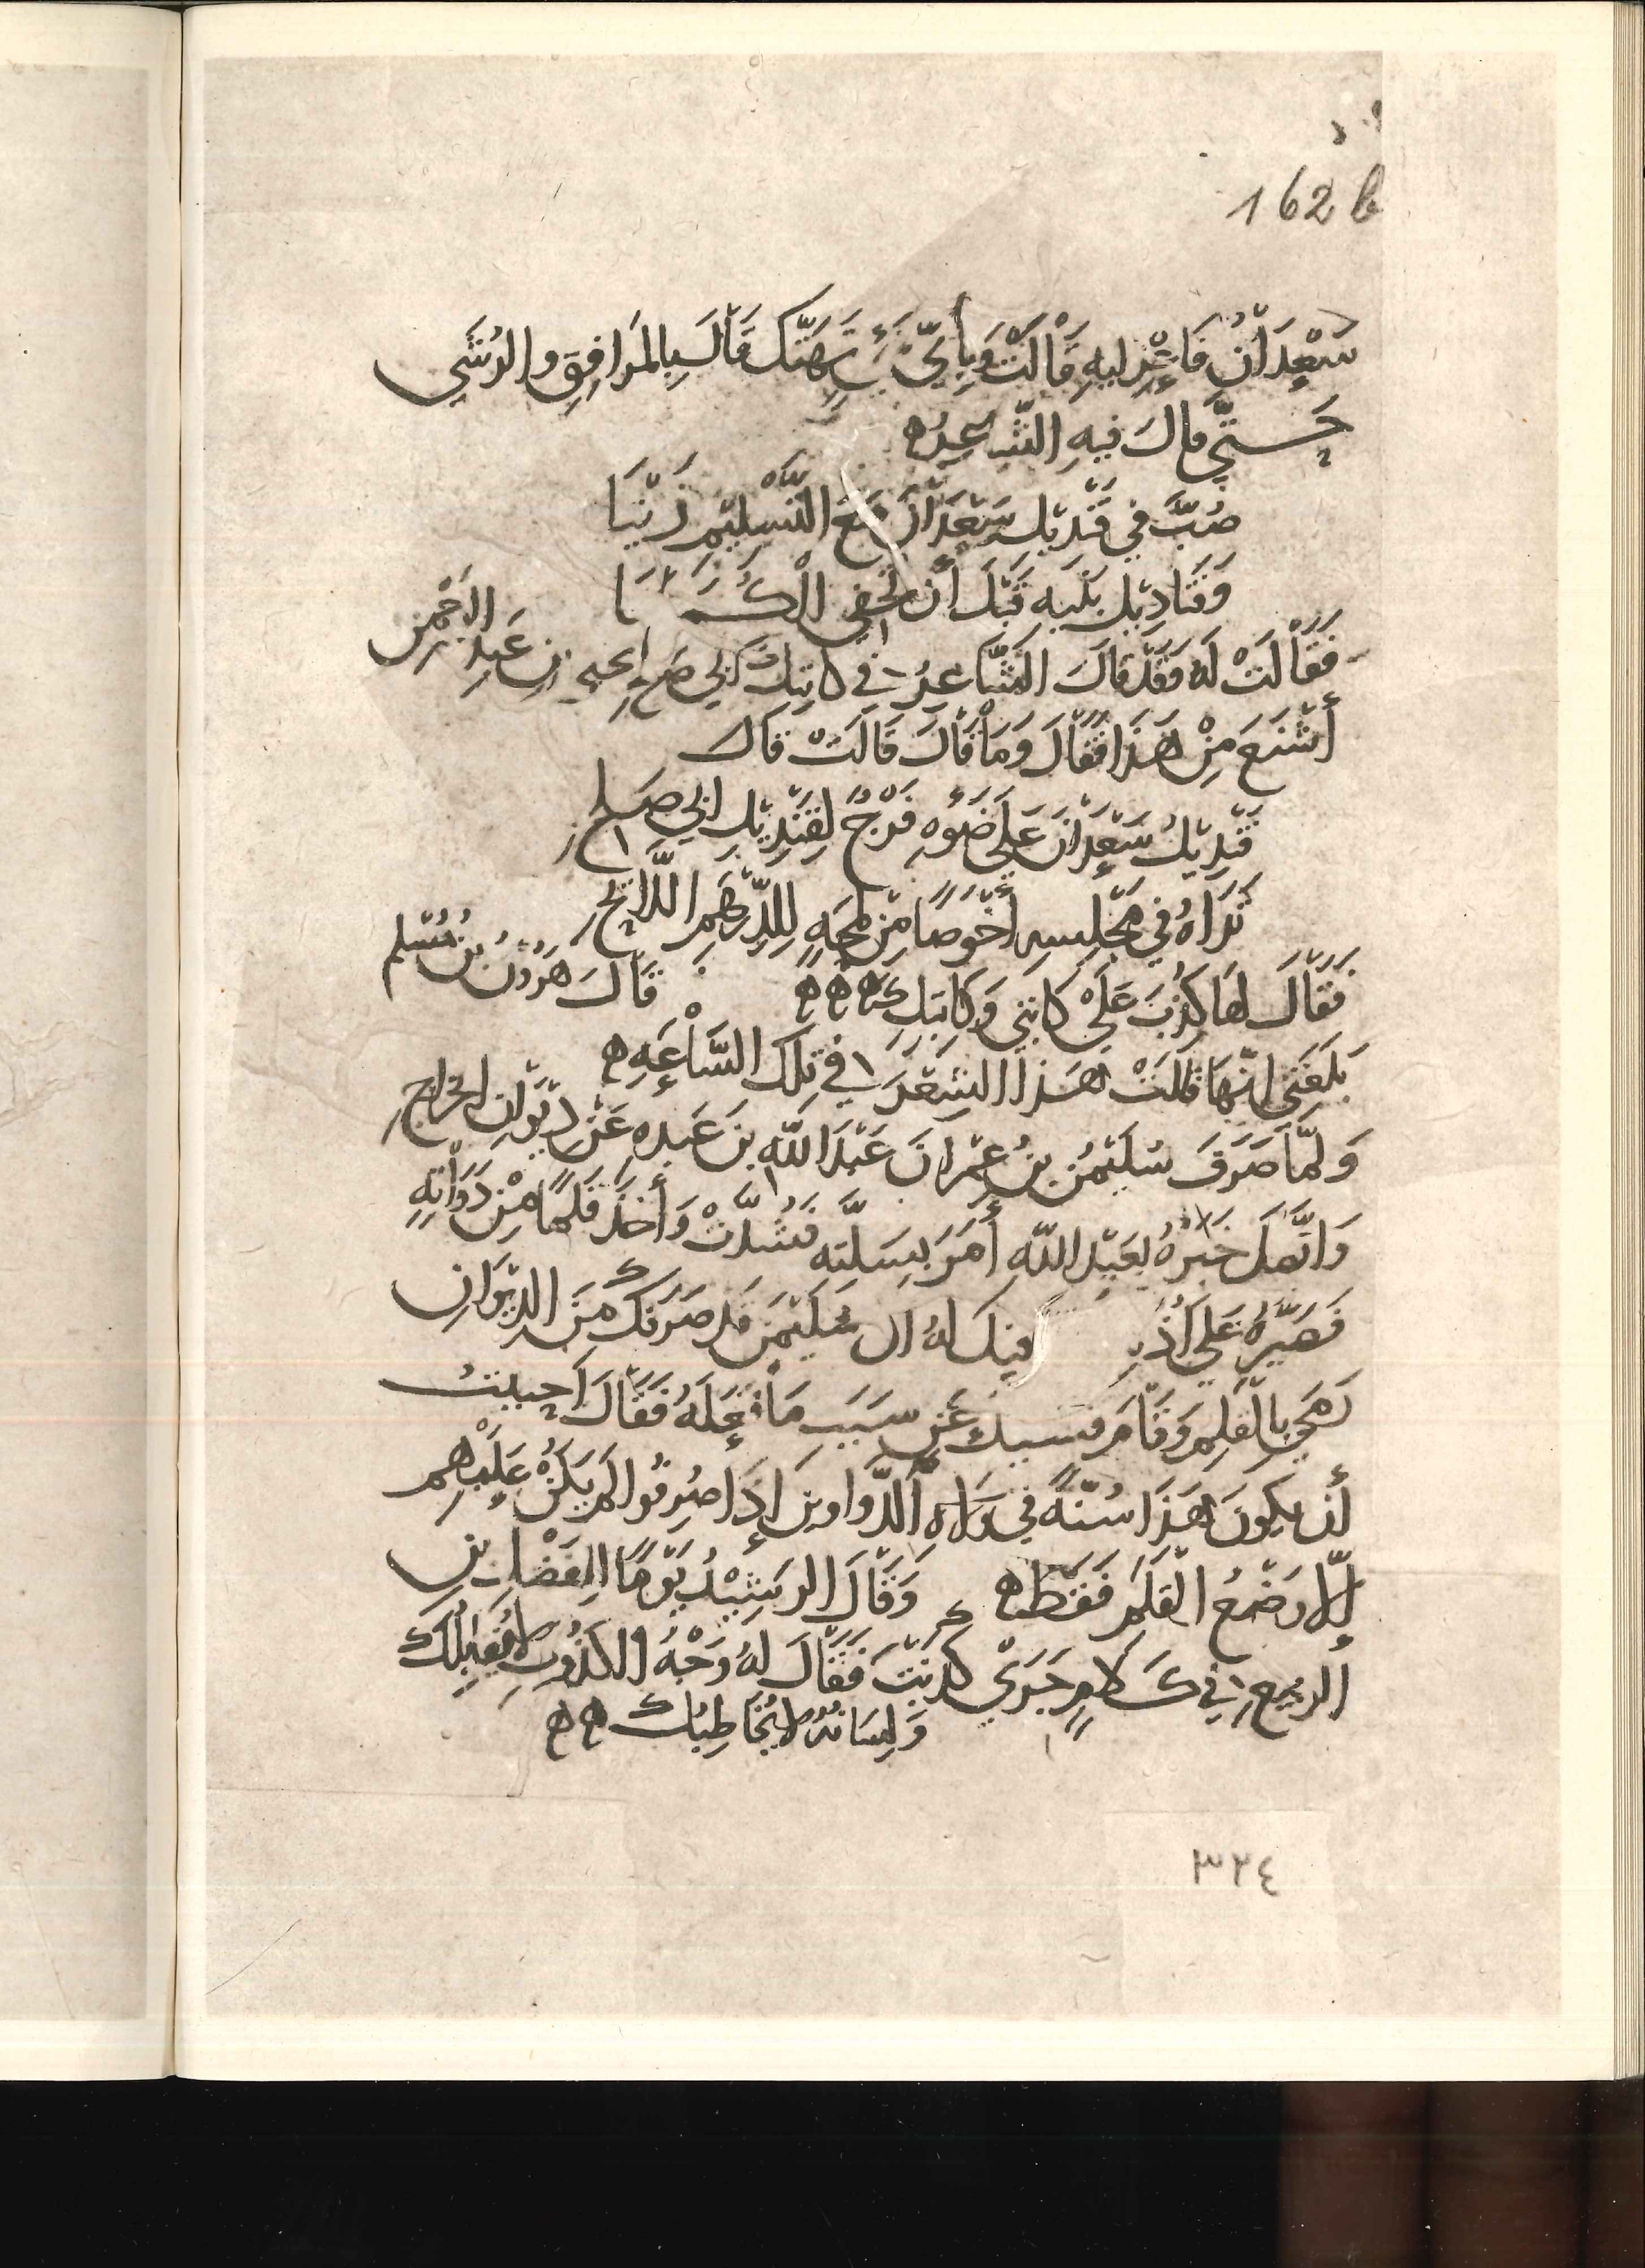 162 b
سَعْدَانُ فَاعْزِليهِ قَالَتْ وَبِأَيِّ شَيْءٍ تَهَتَّك قَالَ بِالمَرَافِقِ والرُشَي
حَتَّي قالَ فيهِ الشَّاعِرُ ه
صُبَّ في قَنْديْلِ سَعْدَانَ مَعَ التَّسْلِيْمِ زَيْتَا
وَقَنَاديْلِ بَنيْهِ قَبْلَ أَن تُخفِي الْكُمَيْتَا
فَقَالَتْ لَهُ فَقَدْ قَالَ الشَّاعِرُ في كاتِبِكَ أبي صَالِحٍ يحيى بنِ عَبدِ الرَحْمن
أَشْنَعَ مِنْ هَذَا فَقَالَ وَمَا قَالَ قَالَتْ قَالَ
قَنْدِيْلُ سَعْدَانَ عَلَي ضَوْءِهِ فَرْخٌ لِقَنْدِيْلِ ابي صَالح
تَرَاهُ في مَجْلِسِهِ أَخْوَصًا مِنْ لَمْحِهِ لِلدِّرْهَمِ اللَّائحِ
فَقَالَ لهَا كَذَبَ عَلَي كَاتبي وَكَاتِبِكِ ه ه ه قَالَ هَرُوْنُ بنُ مُسْلِم
بَلَغَنِي انَّهَا قالَتْ هَذَا الشِعْرَ في تِلكَ السَّاعَهِ ه
وَلمّا صَرَفَ سُلَيْمنُ بنُ عِمْرانَ عَبْدَاللَّهِ بنَ عَبدهِ عَنْ دِيْوَانِ الخراجِ
وَاتَّصَلَ خَبَرُهُ بعَبْدِ اللَّهِ أَمَرَ بِسَلَّتِهِ فَشُدَّتْ وَأَخَذَ قَلَمًا مِنْ دَوَاتِهِ
فَصَيَّرَهُ عَلَي أُذُنِهِ فقيلَ لهُ ان سُلَيْمَنَ قَد صَرَفَكَ مِنَ الدِيْوَانِ
رَمَي بِالْقَلَمِ وَقَامَ فَسُيلَ عَنْ سَبَبِ مَا فَعَلَهُ فَقَالَ أَحببتُ
أَن يكونَ هَذَا سُنَّةً في وُلاهِ الدَّوَاوينِ إِذَا صُرِفُوا لَم يَكُنْ عَلَيْهِم
إِلَّا وَضْعُ الْقَلَمِ فَقَطْ ه وَقَالَ الرَشِيْدُ يَوْمًا لِلفَضْلِ بنِ
الربيعِ في كَلَامٍ جَرَيْ كَذَبْتَ فَقَالَ لهُ وَجْهُ الكَذُوبِ لا يُقَابِلُكَ
وَلِسَانُهُ لا يُخَاطِبُكَ ه ه
٣٢٤